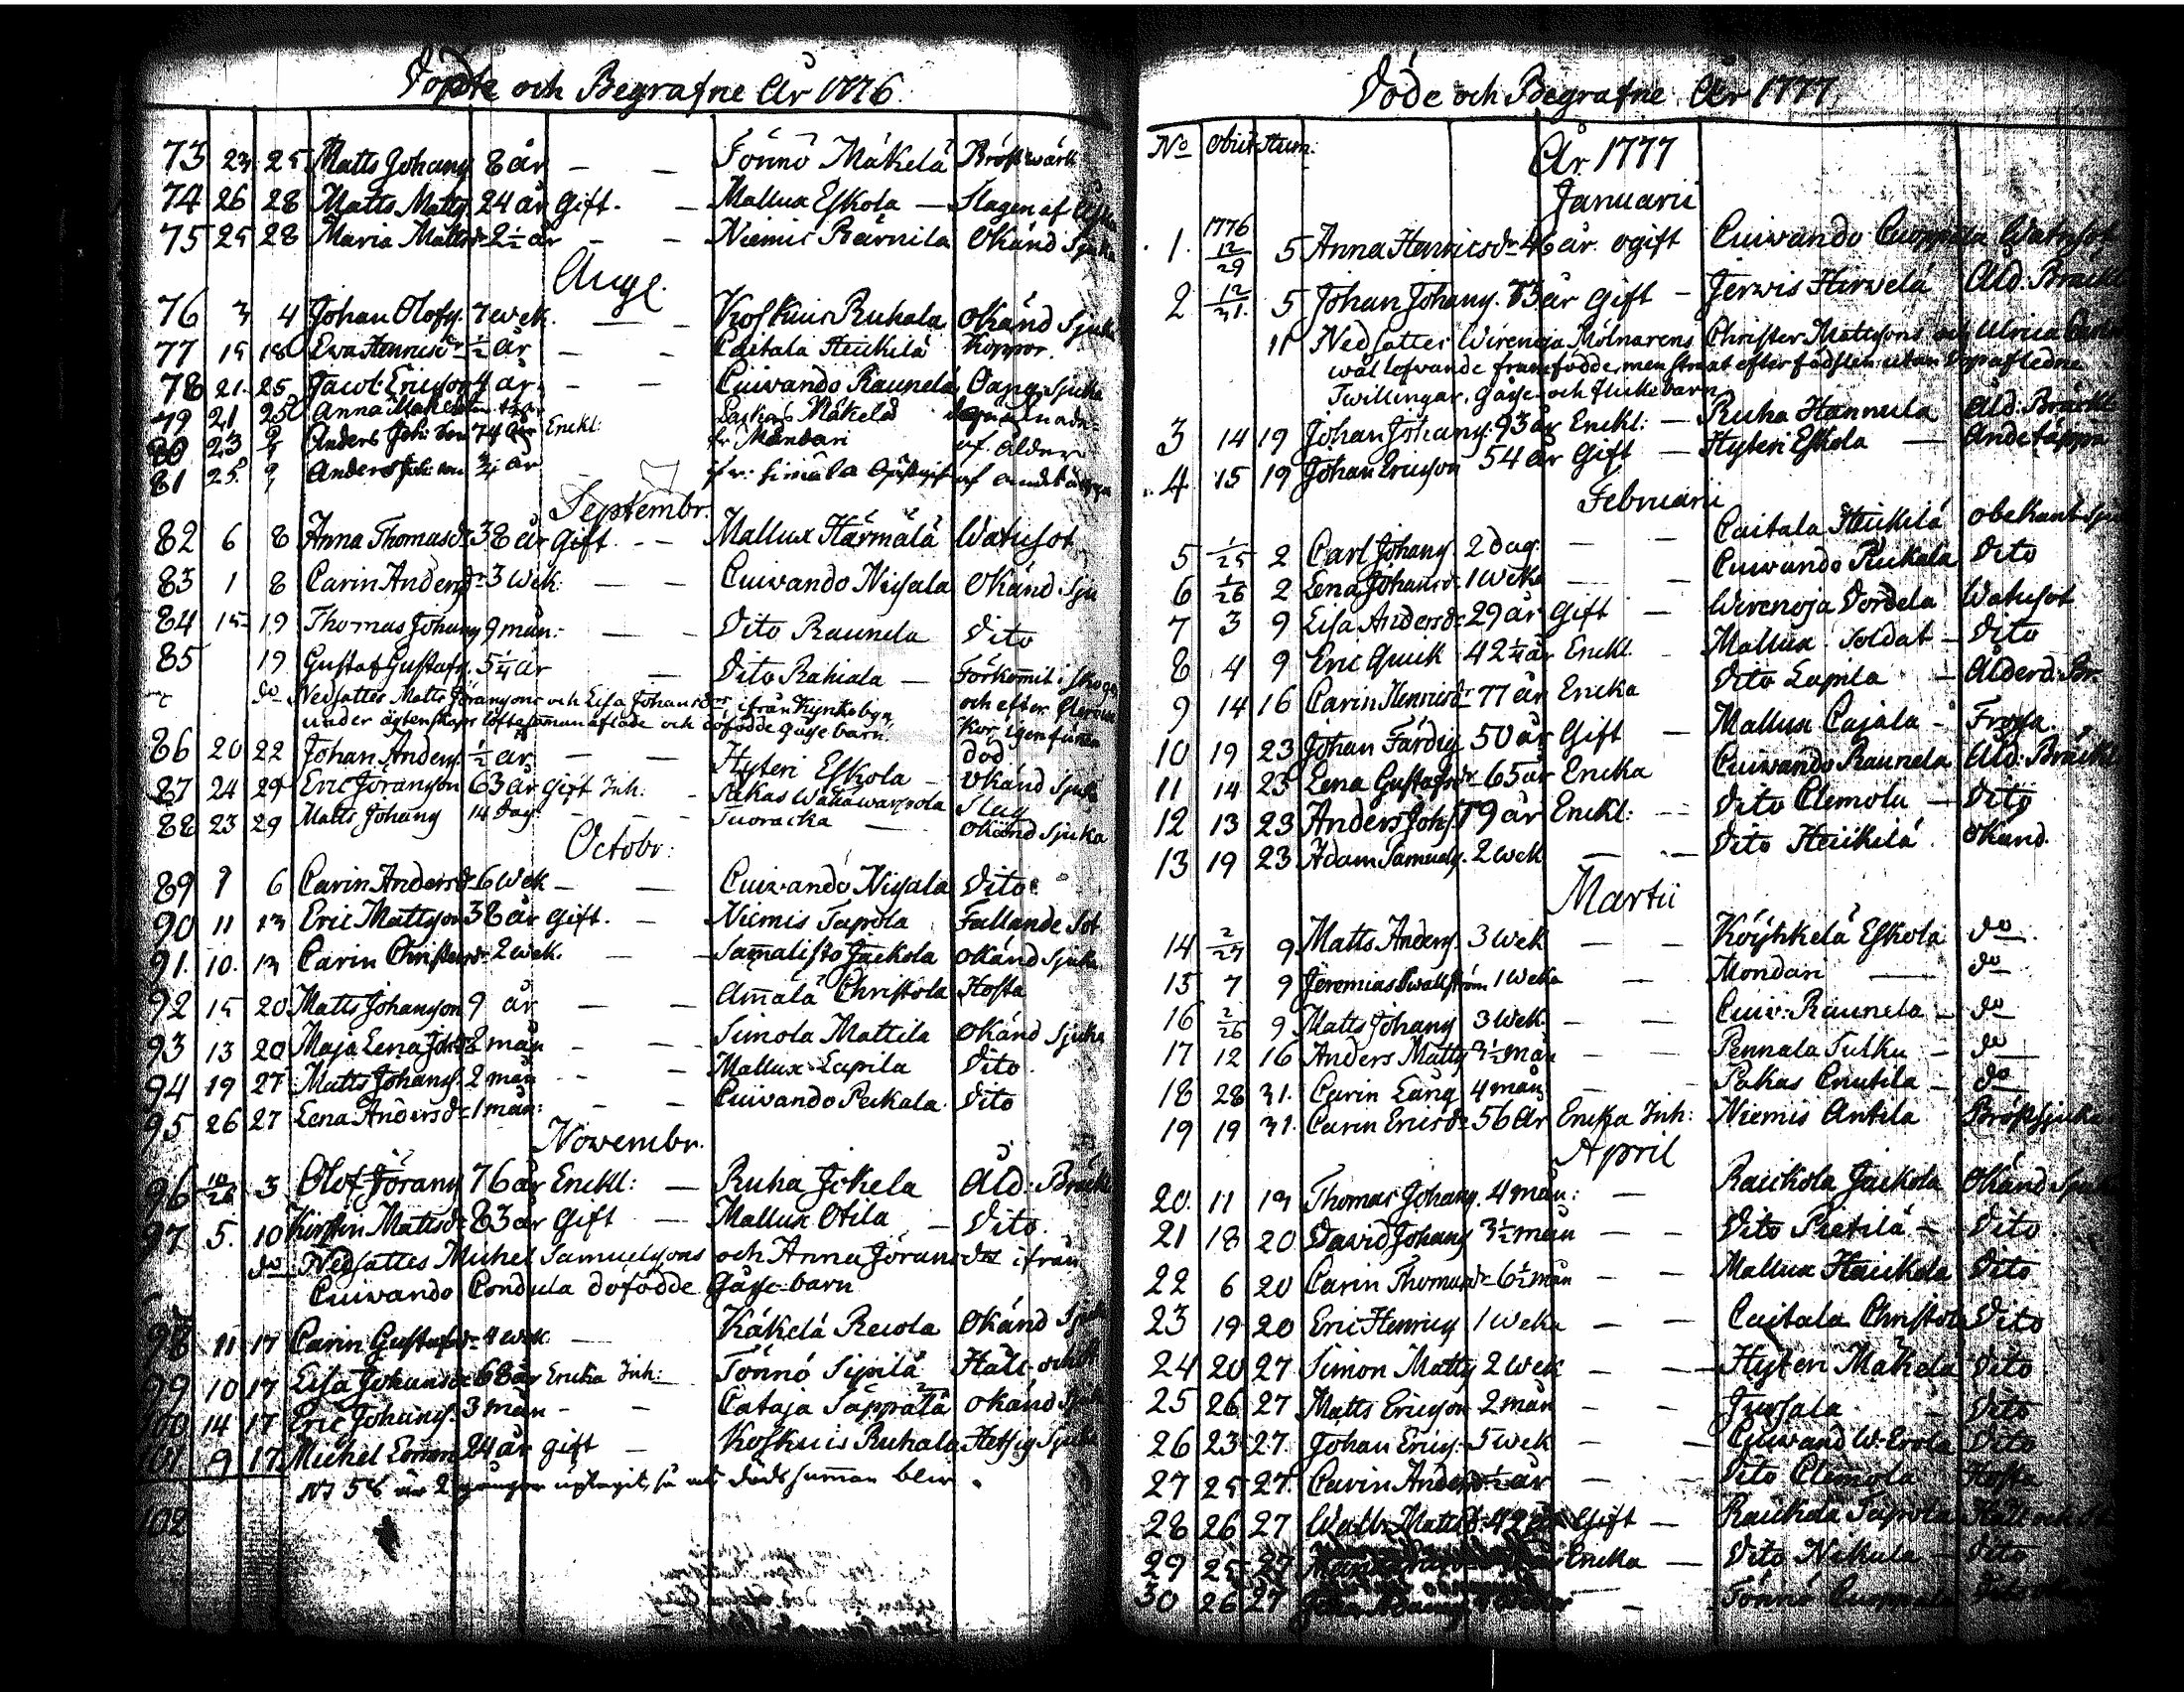 Dödde och Begrafne År 1776.
73 23 25 Matts Johans 8 år — — Tönnö Mäkelä Bröstwärk
74 26 28 Matts Matts. 24 år Gift. — Mallux Eskola — Slagen af Åska
75 25 28 Maria Mattsdr 2½ år — — Niemis Kärnilä Okänd Sjuka
Aug.
76 3 4 Johan Olofs. 7 wek. — — Koskuis Ruhala Okänd Sjuka
77 15 18 Ewa Henricsdr ½ år — — Caitala Heikilä Koppor.
78 21. 25 Jacob Ericsson 4 år — — Cuivando Raunela Sjuka
79 21 25 Anna Mäkelä Mäkelä
80 23 Anders Joh: son 74 år Enckl: fr Mändari af ålder
81 25. Anders Joh: son år fr: Simola af andtäppa
Septembr.
82 6 8 Anna Thomasdr 38 år Gift. — — Mallux Härmälä Watusot
83 1 8 Carin Andersdr 3 Wek: — — Cuivando Nisala Okänd Sju
84 15 19 Thomas Johans 9 mån: — — Dito Raunela Dito
85 19 Gustaf Gustafs. 5¼ år — Dito Rahiala — Förkommit i skogen
do Nedsattes Matts Göranssons och Lisa Johansdrs ifrån Kynkäbyn och efter
under ägtenskaps löfte samman aflade och döfödde Gåsse barn. igen funnen
86 20 22 Johan Anders ½ år — — Hyteri Eskola — död
87 24 29 Eric Göransson 63 år Gift Inh: — Sakas Wäkäwarpola Okänd Sjuka
88 23 29 Matts Johans 14 Dag. — — Suoracka — Slag
Okänd Sjuka
Octobr:
89 1 6 Carin Andersdr 6 Wek — — Cuivando Nisala Dito
90 11 13 Eric Mattsson 38 år Gift. — Niemis Tapola Fallande Sot
91. 10. 13 Carin Christersdr 2 wek. — — Sammalisto Jäckola Okänd Sjuka
92 15 20 Matts Johansson 9 år — — Ammälä Christola Hosta
93 13 20 Maja Lena Johsdr 2 mån — — Simola Mattila Okänd Sjuka
94 19 27 Matts Johans. 2 mån — — Mallux Lapila Dito
95 26 27 Lena Andersdr 1 mån: — — Cuivando Peckala Dito
Novembr.
96 10/28 3 Olof Görans 76 år Enckl: — Ruha Jokela Åld: Bräckl
97 5. 10 Kirstin Mattsdr 83 år Gift — Mallux Otila — Dito.
do Nedsattes Michel Samuelssons och Anna Göransdrs ifrån
Cuivando Condula döfödde Gåsse-barn
98 11 17 Carin Gustafsdr 4 wek. — Käkelä Reiola Okänd Sjuk
99 10 17 Lisa Johansdr 68 år Encka Inh: — Tönnö Sipilä Håll och
100 14 17 Eric Johans. 3 mån — — Cataja Säppälä okänd Sjuk
101 9 17 Michel 24 år gift — Koskuis Ruhala Hetsig Sjuka
No 58 är 2 gångor uptagit, så at dödssumman blir
102
Döde och Begrafne År 1777
No Obiit Hum:
År 1777
Januarii
1. 1776 12/29 5 Anna Henricsdr 46 år. ogift Cuivando Cumpula Watusot
2 12/31. 5 Johan Johans. 73 år Gift — Jerwis Hirwelä Åld. Bräckl
11 Nedsattes Wirenoja Mölnarens Christer Mattssons och Ulrica
wäl lefvande framfödde, men straxt efter födslen utan Dop afledne
Twillingar, Gåsse- och flicke barn
3 14 19 Johan Johans. 93 år Enckl: — Ruha Hannula Åld: Bräckl
4. 15 19 Johan Ericsson 54 år Gift — Hyteri Eskola — Andetäppa
Februarii
5 1/25 2 Carl Johans 2 dag. — — Caitala Heikilä obekant Sju
6 1/26 2 Lena Johansdr 1 Weka — — Cuivando Peckala Dito
7 3 9 Lisa Andersdr 29 år Gift — Wirenoja Dordela Watusot
8 4 9 Eric Quick 42¼ år Enckl. — Mallux Soldat — Dito
9 14 16 Carin Henricsdr 77 år Encka Dito Lapila — Ålderd: Br.
10 19 23 Johan Färdig 50 år Gift — Mallux Cajala — Frossa
11 14 23 Lena Gustafsdr 65 år Encka Cuivando Raunela Åld: Bräckl
12 13 23 Anders Johs. 79 år Enckl: — Dito Clemola — Dito
13 19 23 Adam Samuels. 2 wek — — Dito Heikilä Okänd.
Martii
14 2/27 9 Matts Anders 3 Wek — — Köyhkelä Eskola do
15 7 9 Jeremias Swallström 1 Weka — Mondari — do
16 2/26 9 Matts Johans 3 Wek. — — Cuiv: Raunela — do
17 12 16 Anders Matts 3½ mån — — Pennala Sulku — do
18 28 31. Carin Lång 4 mån — — Sakas Cnutila — do
19 19 31. Carin Ericsdr 56 år Encka Inh: Niemis Antila Bröstsjuka
April
20. 11 13 Thomas Johans. 4 mån: — Raickola Jäckola Okänd Sjuka
21 18 20 David Johans 3½ mån — — Dito Pietilä — Dito
22 6 20 Carin Thomasdr 6½ mån — — Mallux Haickola Dito
23 19 20 Eric Henrics 1 Weka — — Caitala Christola Dito
24 20 27 Simon Matts 2 Wek — — Hyteri Mäkelä Dito
25 26 27 Matts Ericsson 2 mån — — Jussala — Dito
26 23 27 Johan Erics. 5 Wek — — Cuivand W. Erola Dito
27 25 27. Carin Andersdr ½ år — — Dito Clemola Hosta
28 26 27 Walb. Mattsdr 42 år Gift — Raickola Tapola Håll och St
29 25 27 Encka — Dito Nikula — Dito
30 26 27 — Tönnö